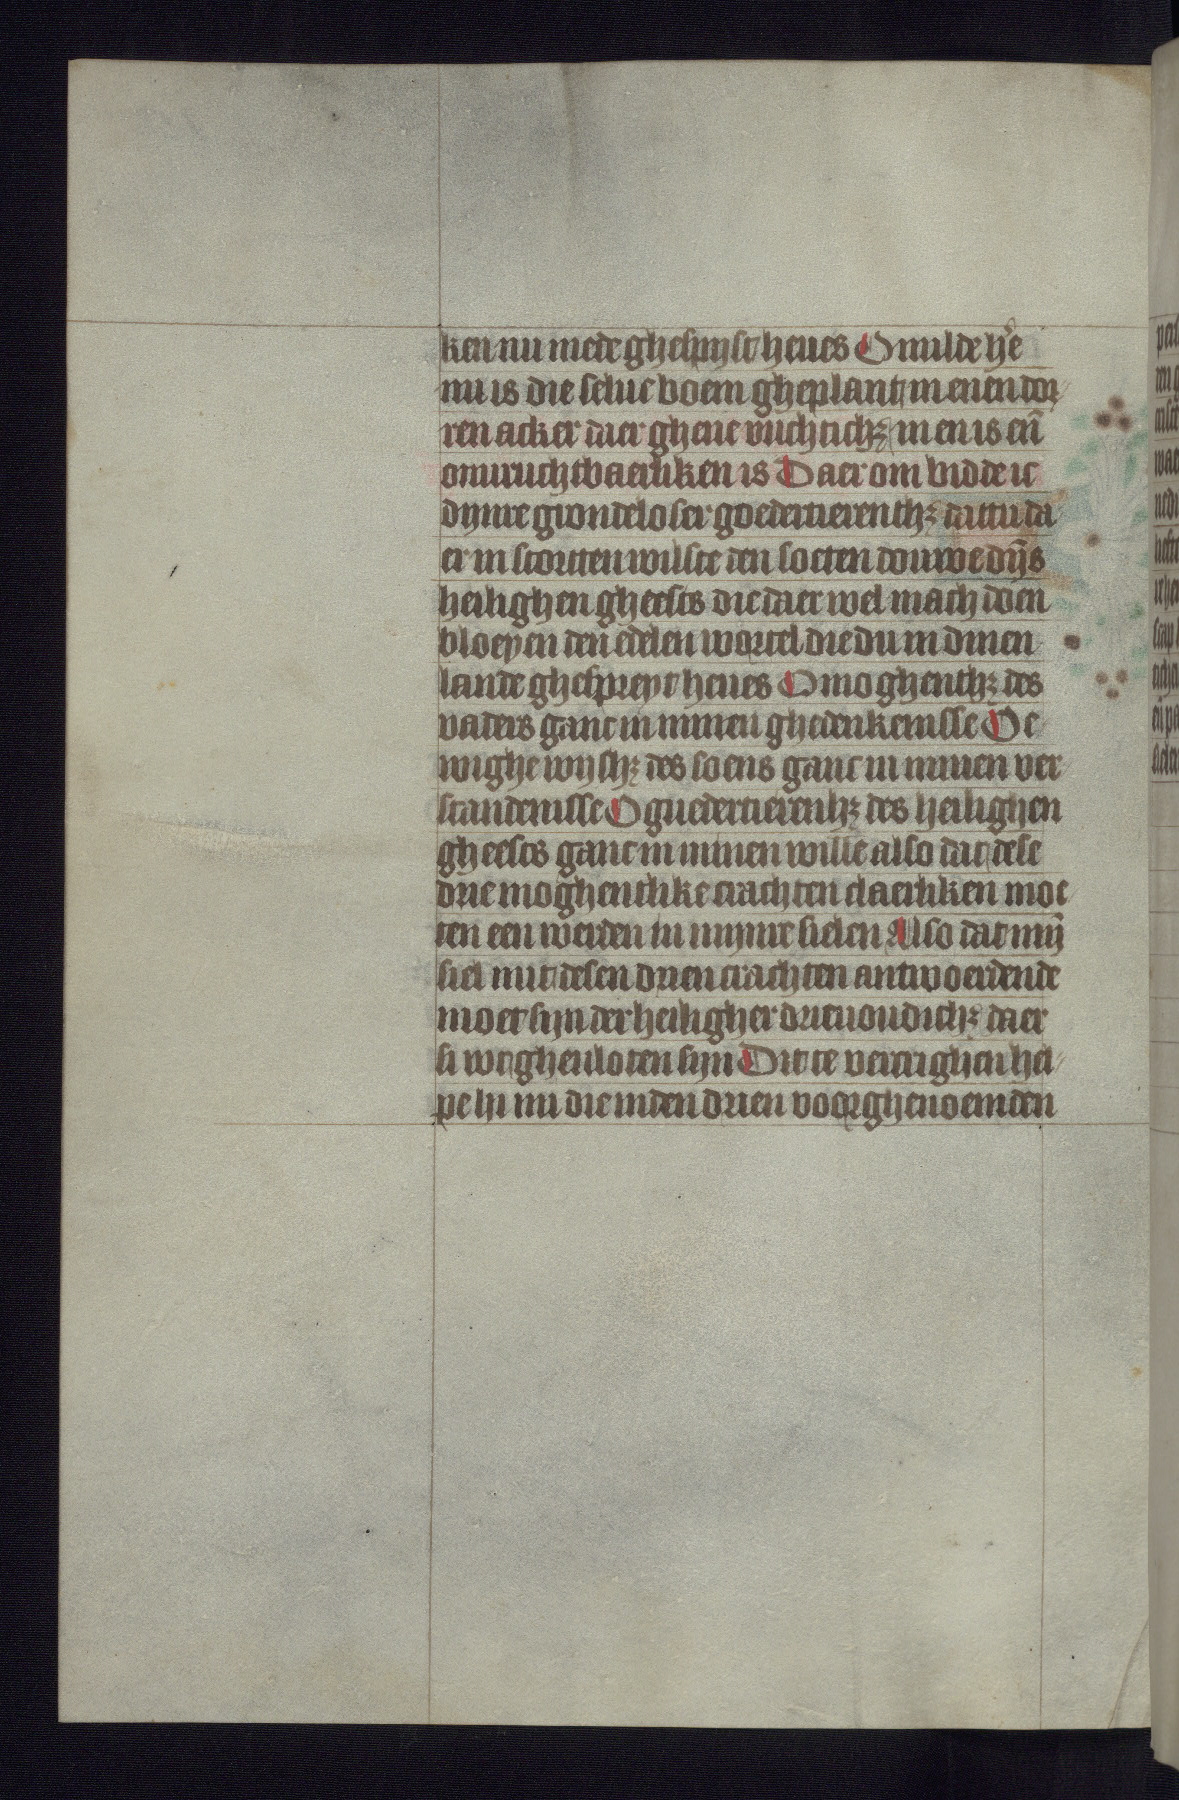 ken nu mede ghespijst heues O milde hẽe
nu is die selue boem gheplant in enen dor
ren acker daer ghene vuchtichꝫ in en is eñ
onuruchtbaerliken is Daer om bidde ic
dijnre grondeloser goedertierenthꝫ dattu da
er in storten wilste den soeten douwe dijs
heilighen gheests die daer wel mach doen
bloeyen den edelen wortel die du in dinen
lande ghespreyt heues O moghenthꝫ des
vaders ganc in minen ghedenkenisse O e
wighe wijshꝫ des soens ganc in minen ver
standenisse O guedertierenhꝫ des heilighen
gheests ganc in minen wille also dat dese
drie moghentlike crachten claerliken moe
ten een werden in mijnre sielen Also dat mij̃
siel mit desen drien crachten antwoerdende
moet sijn der heiligher drieuoudichꝫ daer
si wt ghevloten sijn Dit te vercrighen hel
pe hi mi die in den drien voorghenoemden